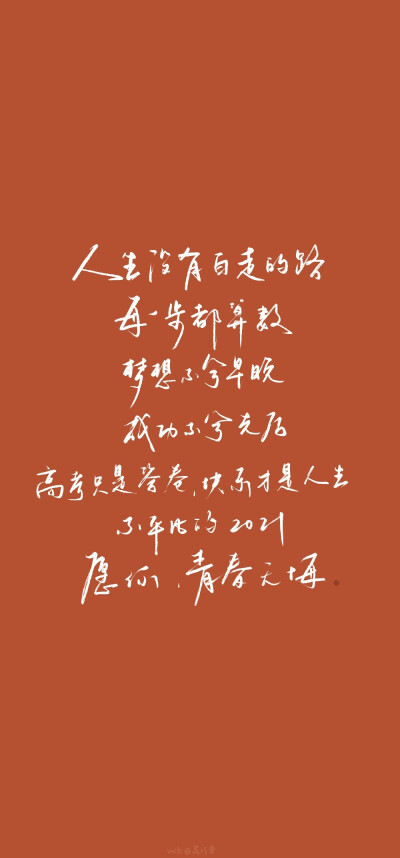 人生没有白走的路
每一步都算数
梦想不分早晚
成功不分先后
高考只是答卷,快乐才是人生
不平凡的2021
愿你、青春无悔。